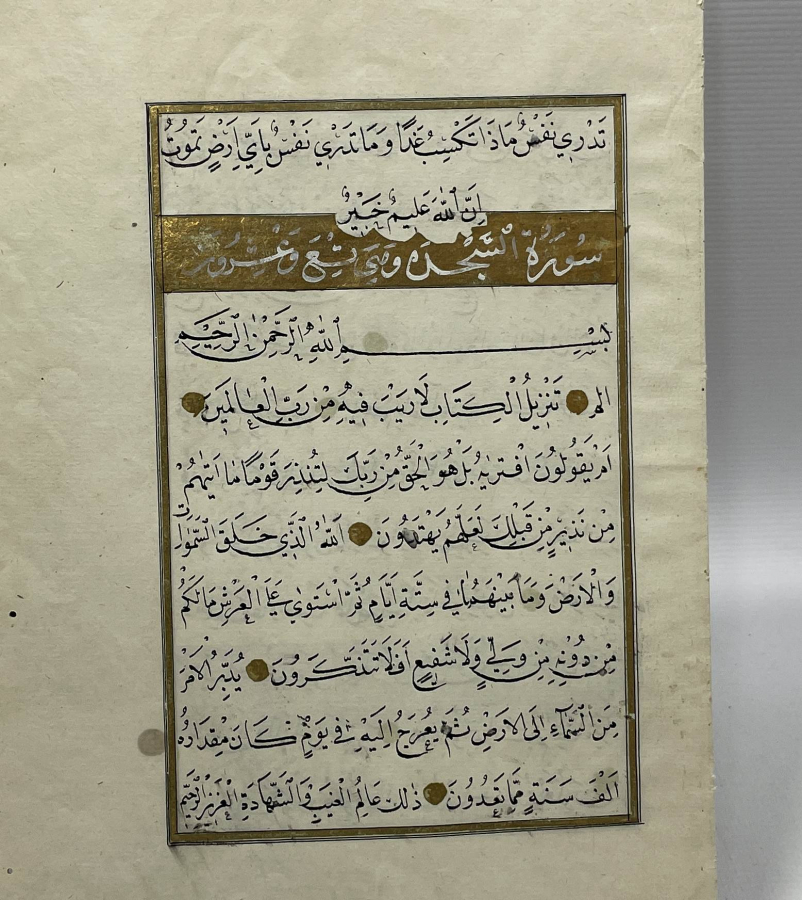 تَدْرِي نَفْسٌ مَاذَا تَكْسِبُ غَدًا وَمَا تَدْرِي نَفْسٌ بِاَيِّ اَرْضٍ تَمُوتُ
اِنَّ اللّٰهَ عَلِيمٌ خَبِيرٌ
سُورَةُ السَّجْدَه وَهِيَ تِسْعَ وَعِشْرُونَ
بِسْمِ اللّٰهِ الرَّحْمٰنِ الرَّحِيمِ
الم تَنْزِيلُ الْكِتَابِ لَا رَيْبَ فِيهِ مِنْ رَبِّ الْعَالَمِينَ
اَمْ يَقُولُونَ افْتَرٰيهُ بَلْ هُوَ الْحَقُّ مِنْ رَبِّكَ لِتُنْذِرَ قَوْمًا مَا اَتٰيهُمْ
مِنْ نَذِيرٍ مِنْ قَبْلِكَ لَعَلَّهُمْ يَهْتَدُونَ اَللّٰهُ الَّذِي خَلَقَ السَّمٰوَاتِ
وَالْاَرْضَ وَمَا بَيْنَهُمَا فِي سِتَّةِ اَيَّامٍ ثُمَّ اسْتَوٰى عَلَى الْعَرْشِ مَا لَكُمْ
مِنْ دُونِهِ مِنْ وَلِيٍّ وَلَا شَفِيعٍ اَفَلَا تَتَذَكَّرُونَ يُدَبِّرُ الْاَمْرَ
مِنَ السَّمَاءِ اِلَى الْاَرْضِ ثُمَّ يَعْرُجُ اِلَيْهِ فِي يَوْمٍ كَانَ مِقْدَارُهُ
اَلْفَ سَنَةٍ مِمَّا تَعُدُّونَ ذٰلِكَ عَالِمُ الْغَيْبِ وَالشَّهَادَةِ الْعَزِيزُ الرَّحِيمُ